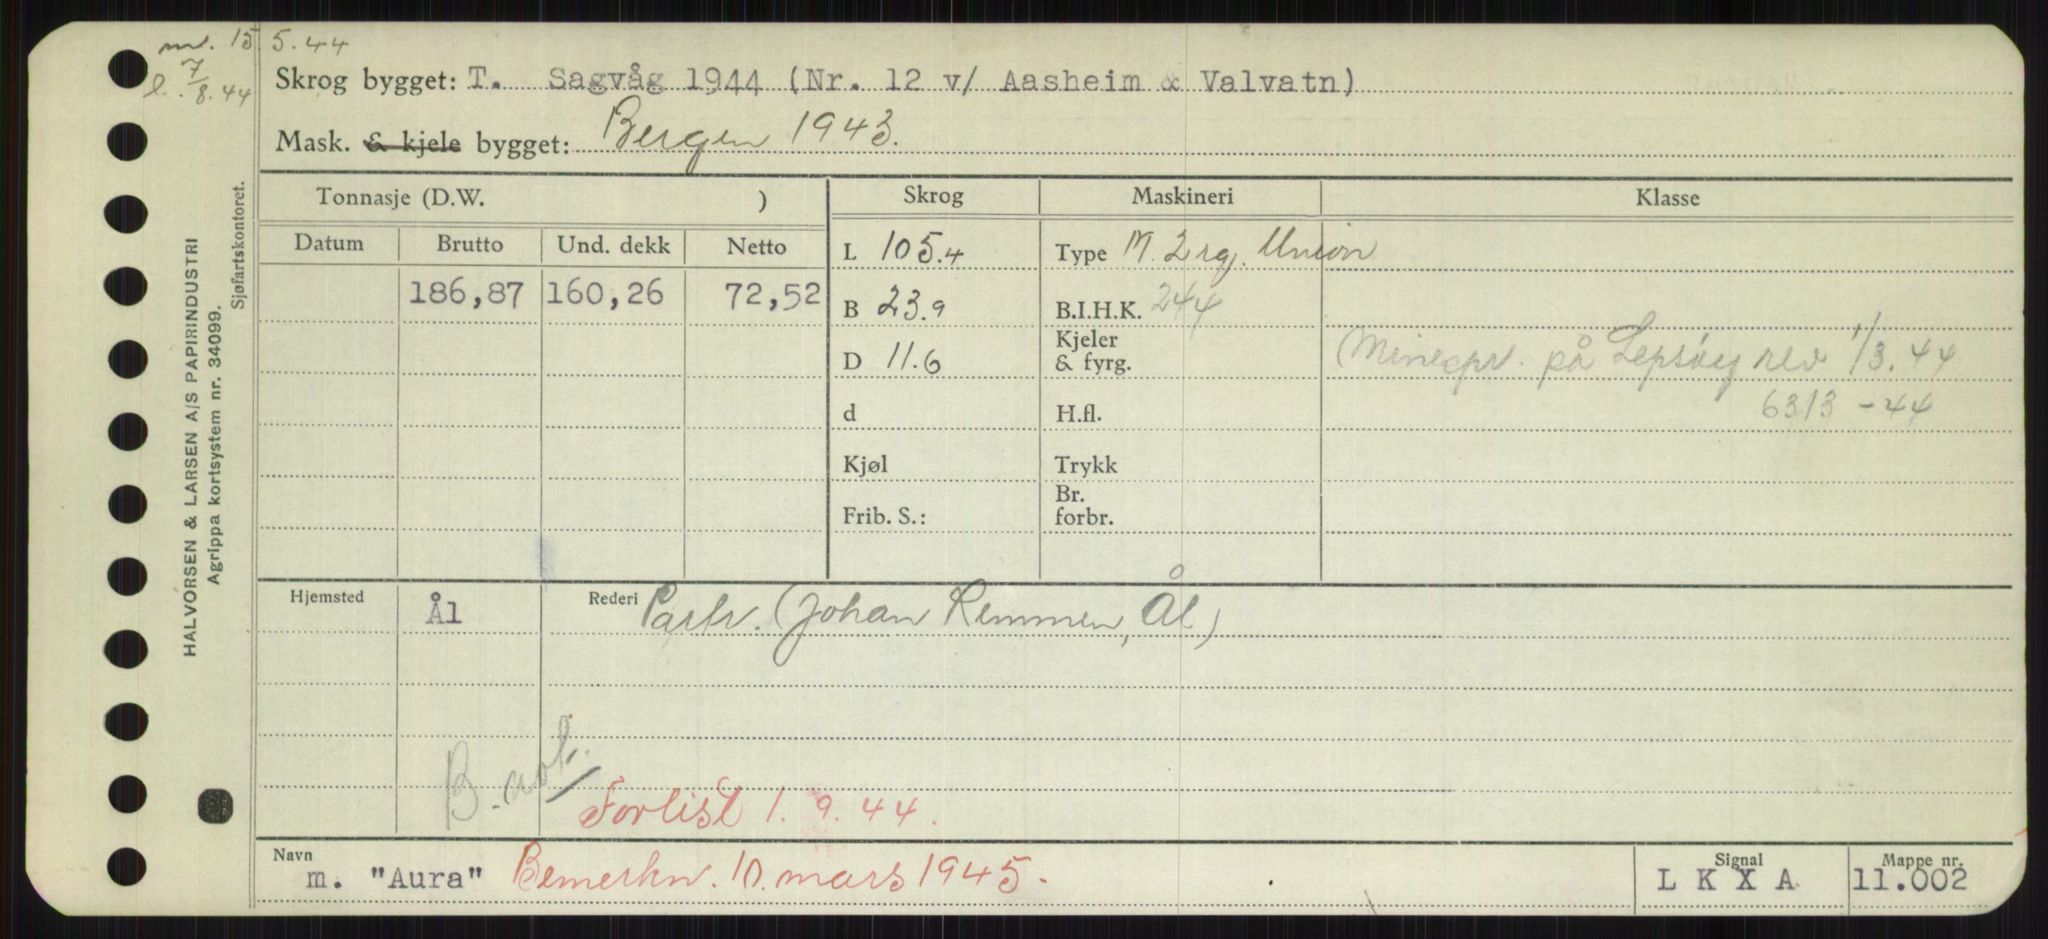 m. 15 5.44
l. 7/8.44
Skrog bygget: T. Sagvåg 1944 (Nr. 12 v/ Aasheim & Valvatn)
Mask. & kjele bygget: Bergen 1943.
HALVORSEN & LARSEN A/S PAPIRINDUSTRI
Agrippa kortsystem nr. 34099.
Sjøfartskontoret.
Tonnasje (D.W. )
Skrog
Maskineri
Klasse
Datum Brutto Und. dekk Netto
186,87 160,26 72,52
L 105.4
B 23.9
D 11.6
d
Kjøl
Frib. S.:
Type M. 2 rg. Union
B.I.H.K. 244
Kjeler
& fyrg.
H.fl.
Trykk
Br.
forbr.
(Minespr. på Lepsøy rev 1/3.44
6313-44
Hjemsted Ål
Rederi Partr. (Johan Remmen, Ål)
B.
Forlist 1.9.44.
Navn m. "Aura" Bemerkn. 10. mars 1945.
Signal L K X A
Mappe nr. 11.002